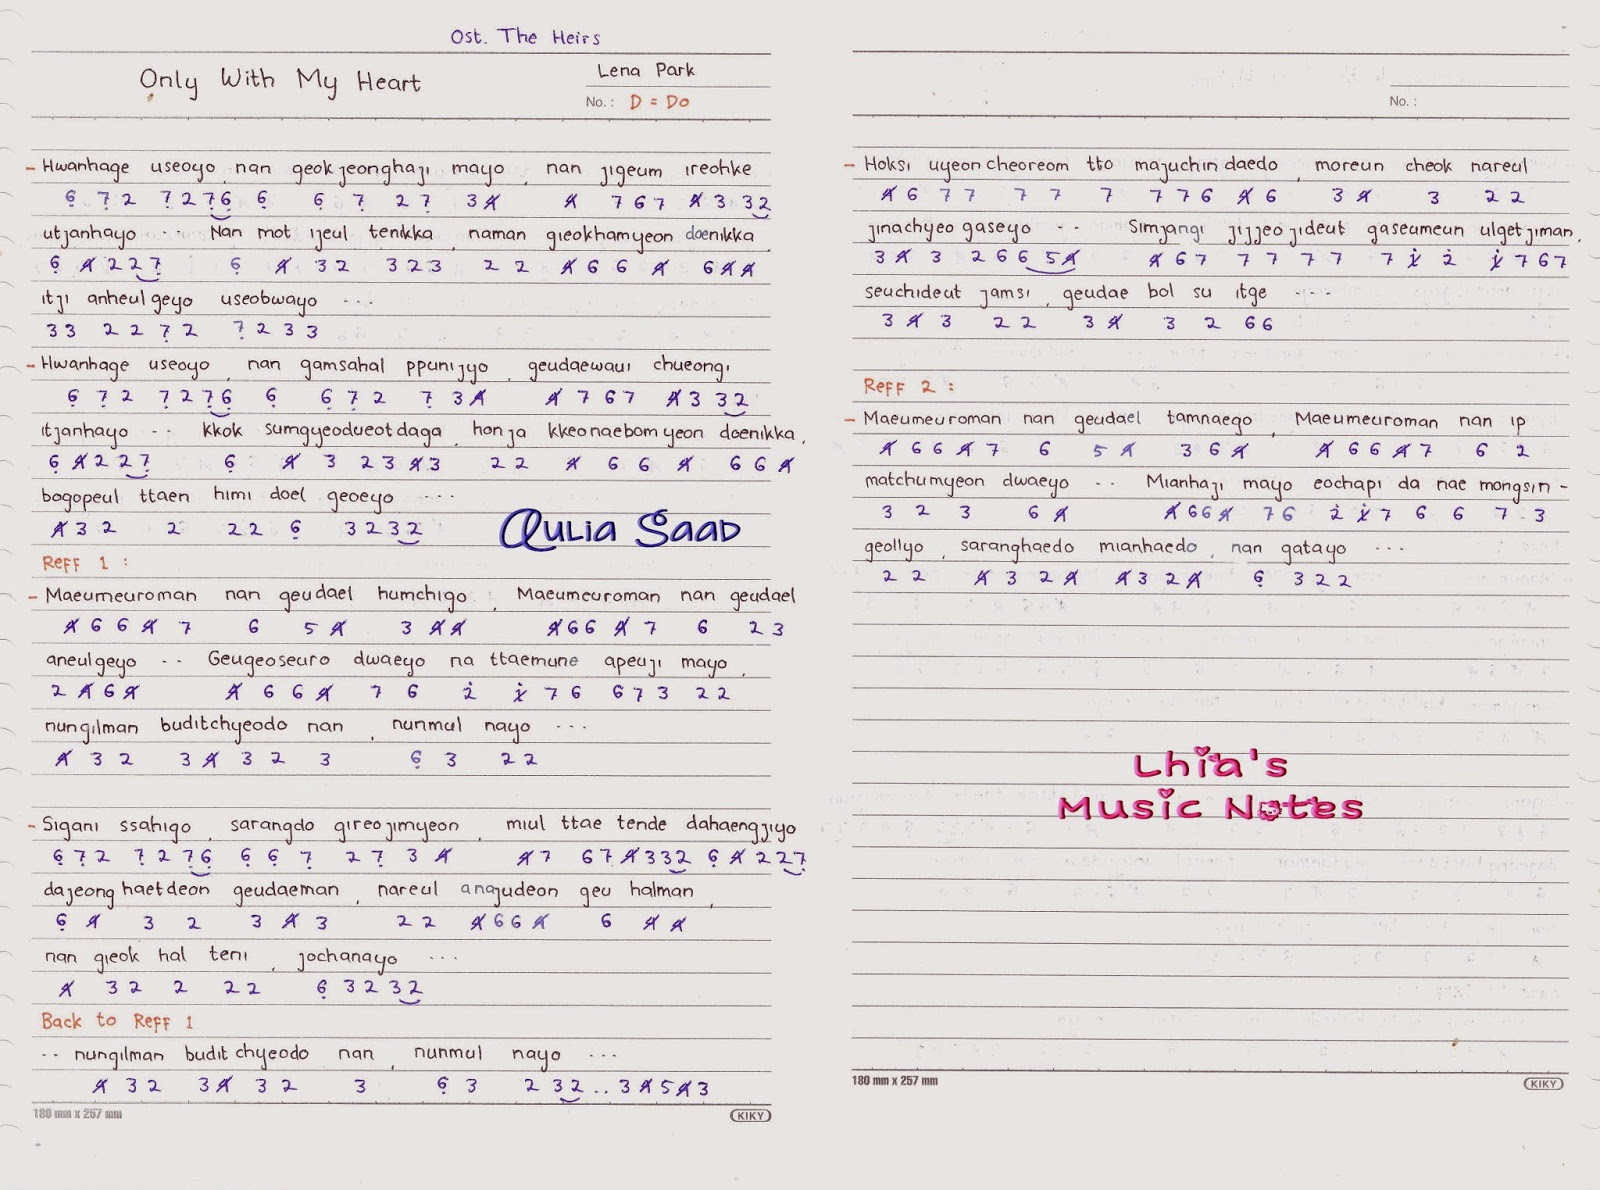 Ost. The Heirs
Only With My Heart
Lena Park
No. : D = Do
- Hwanhage useoyo, nan geokjeonghaji mayo, nan jigeum ireohke
6 7 2 7 2 7 6 6 6 7 2 7 3 4 4 7 6 7 4 3 3 2
utjanhayo ... Nan mot ijeul tenikka, naman gieokhamyeon doenikka,
6 4 2 2 7 6 4 3 2 3 2 3 2 2 4 6 6 4 6 4 4
itji anheulgeyo useobwayo ...
3 3 2 2 7 2 7 2 3 3
- Hwanhage useoyo, nan gamsahal ppunijyo, geudaewaui chueongi
6 7 2 7 2 7 6 6 6 7 2 7 3 4 4 7 6 7 4 3 3 2
itjanhayo .. kkok sumgyeodueotdaga, honja kkeonaebomyeon doenikka,
6 4 2 2 7 6 4 3 2 3 4 3 2 2 4 6 6 4 6 6 4
bogopeul ttaen himi doel geoeyo ....
4 3 2 2 2 2 6 3 2 3 2
Aulia Saad
Reff 1 :
- Maeumeuroman nan geudael humchigo, Maeumeuroman nan geudael
4 6 6 4 7 6 5 4 3 4 4 4 6 6 4 7 6 2 3
aneulgeyo .. Geugeoseuro dwaeyo na ttaemune apeuji mayo,
2 4 6 4 4 6 6 4 7 6 2 1 7 6 6 7 3 2 2
nungilman buditchyeodo nan, nunmul nayo ...
4 3 2 3 4 3 2 3 6 3 2 2
- Sigani ssahigo, sarangdo gireojimyeon, miul ttae tende dahaengjiyo
6 7 2 7 2 7 6 6 6 7 2 7 3 4 4 7 6 7 4 3 3 2 6 4 2 2 7
dajeonghaetdeon geudaeman, nareul anajudeon geu halman,
6 4 3 2 3 4 3 2 2 4 6 6 4 6 4 4
nan gieok hal teni, jochanayo ...
4 3 2 2 2 2 6 3 2 3 2
Back to Reff 1
.. nungilman buditchyeodo nan, nunmul nayo ...
4 3 2 3 4 3 2 3 6 3 2 3 2 .. 3 4 5 4 3
180 mm x 257 mm
KIKY
No. :
- Hoksi uyeoncheoreom tto majuchindaedo, moreun cheok nareul
4 6 7 7 7 7 7 7 7 6 4 6 3 4 3 2 2
jinachyeo gaseyo .. Simjangi jijjeojideut gaseumeun ulgetjiman,
3 4 3 2 6 6 5 4 4 6 7 7 7 7 7 7 1 2 1 7 6 7
seuchideut jamsi, geudae bol su itge ....
3 4 3 2 2 3 4 3 2 6 6
Reff 2 :
- Maeumeuroman nan geudael tamnaego, Maeumeuroman nan ip
4 6 6 4 7 6 5 4 3 6 4 4 6 6 4 7 6 2
matchumyeon dwaeyo .. Mianhaji mayo eochapi da nae mongsin-
3 2 3 6 4 4 6 6 4 7 6 2 1 7 6 6 7 . 3
geollyo, saranghaedo mianhaedo, nan gatayo ...
2 2 4 3 2 4 4 3 2 4 6 3 2 2
Lhia's
Music Notes
180 mm x 257 mm
KIKY